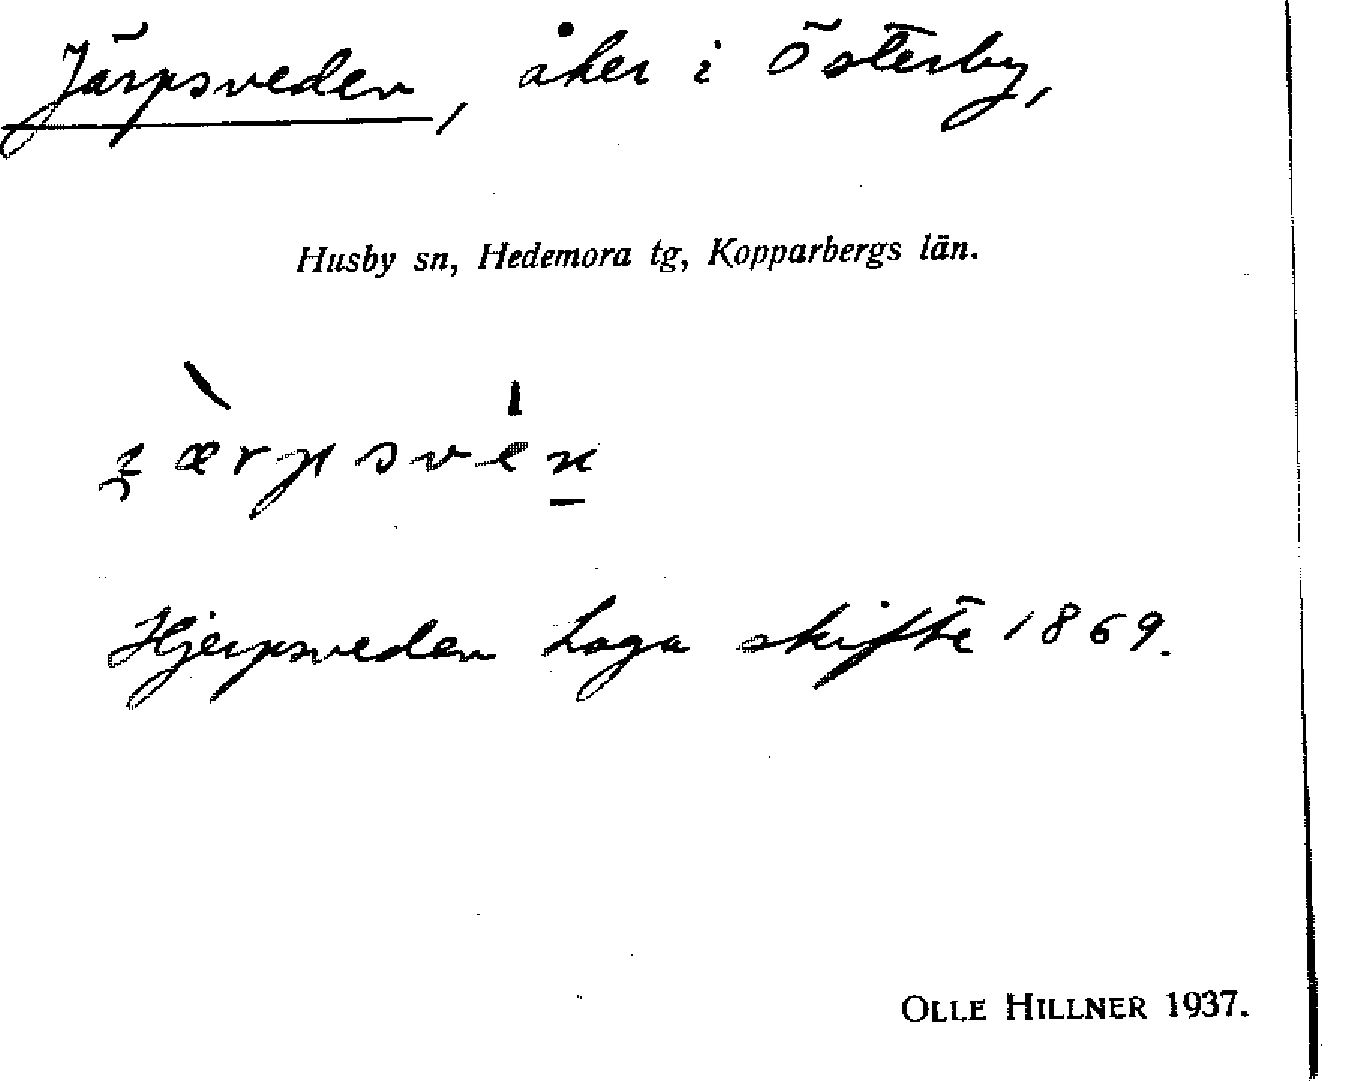 Järpsveden, åker i Österby,
Husby sn, Hedemora tg, Kopparbergs län.
Hjerpsveden Laga skifte 1869.
OLLE HILLNER 1937.